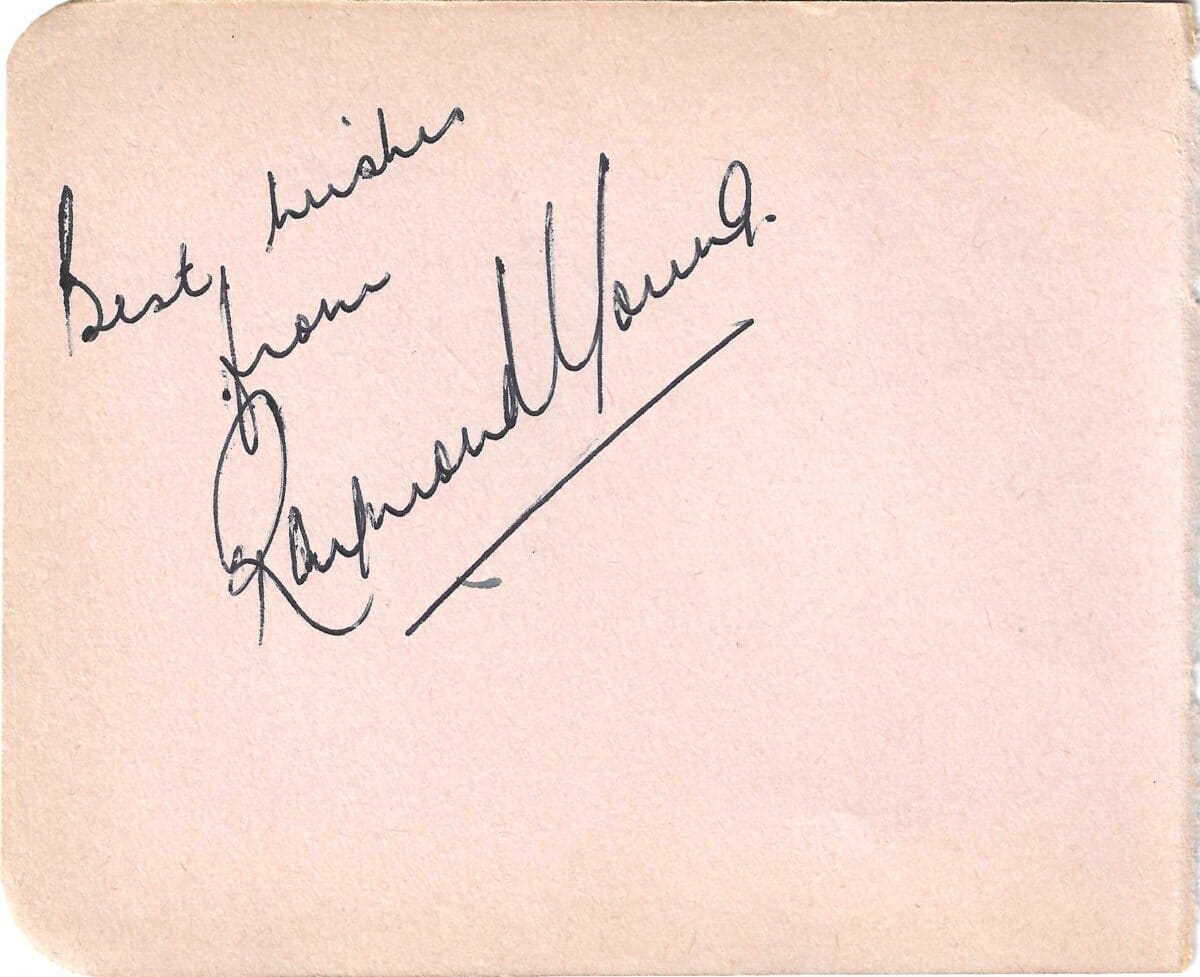 Best wishes
from
Raymond Young.